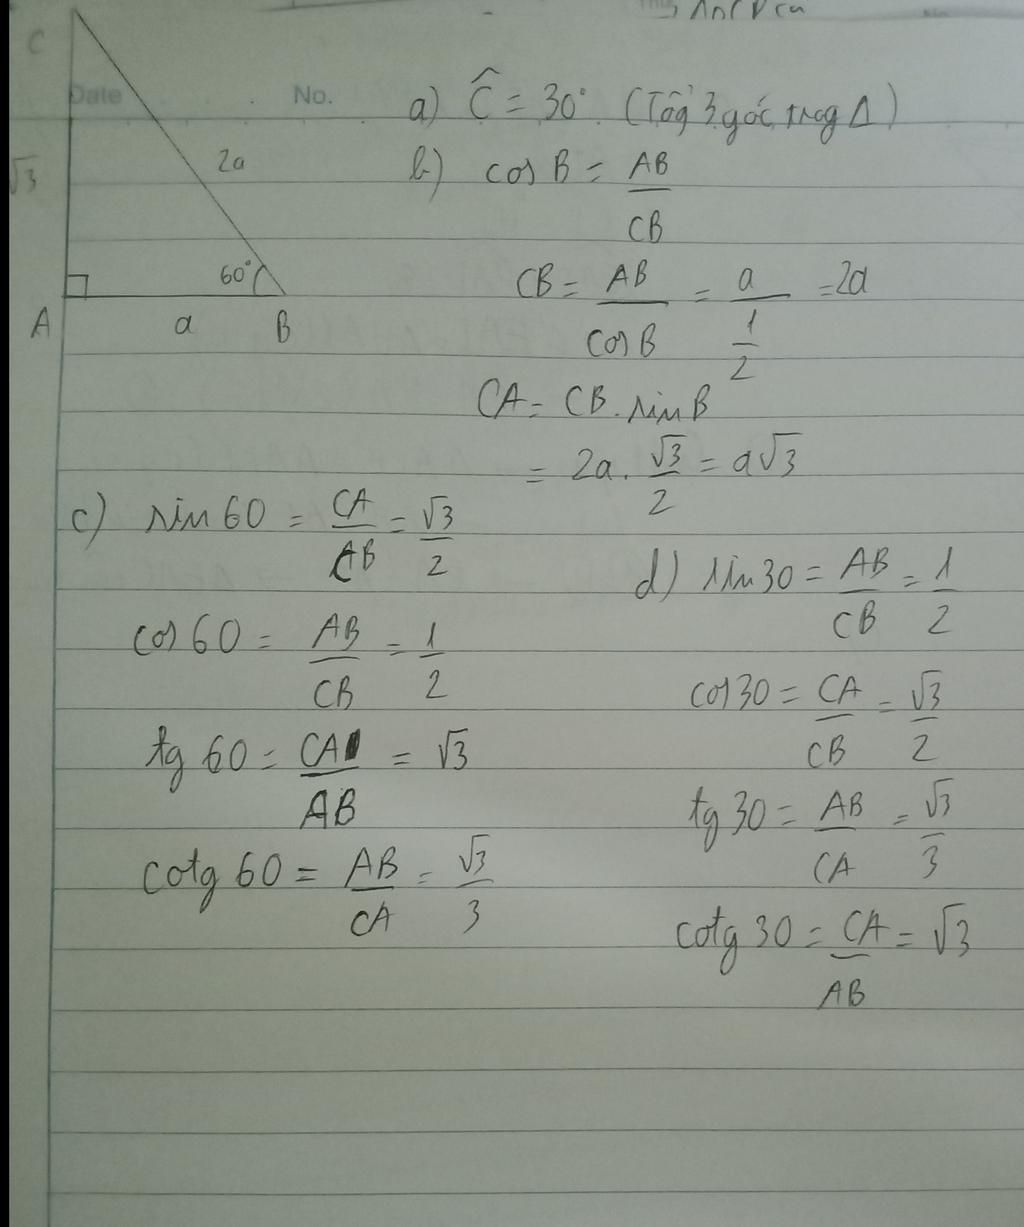 C
Date No.
a) Ĉ = 30°. (Tổg 3 góc trog Δ)
√3
2a
b) cos B = AB/CB
60°
A a B
CB = AB/cos B = a/(1/2) = 2a
CA = CB . sin B
= 2a . √3/2 = a√3
c) sin 60 = CA/CB = √3/2
cos 60 = AB/CB = 1/2
tg 60 = CA/AB = √3
cotg 60 = AB/CA = √3/3
d) sin 30 = AB/CB = 1/2
cos 30 = CA/CB = √3/2
tg 30 = AB/CA = √3/3
cotg 30 = CA/AB = √3